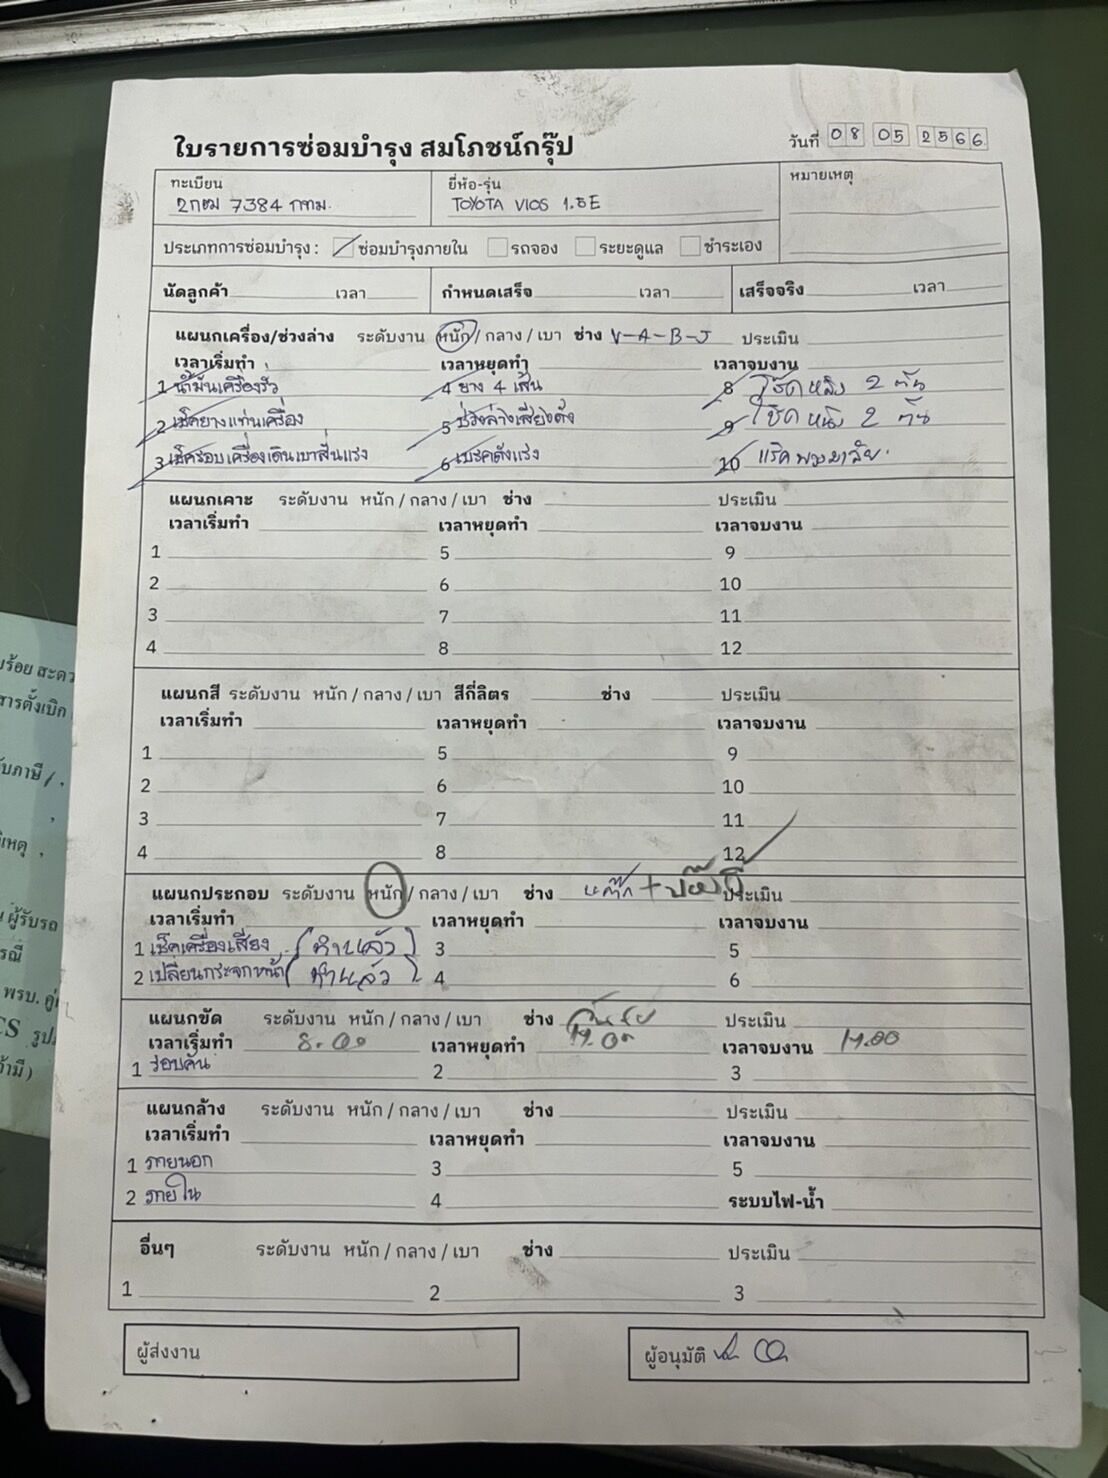 ใบรายการซ่อมบำรุง สมโภชน์กรุ๊ป
วันที่ 08 05 2566
ทะเบียน ยี่ห้อ-รุ่น หมายเหตุ
7384 กทม. TOYOTA VIOS 1.5E
ประเภทการซ่อมบำรุง : ซ่อมบำรุงภายใน รถจอง ระยะดูแล ชำระเอง
นัดลูกค้า เวลา กำหนดเสร็จ เวลา เสร็จจริง เวลา
แผนกเครื่อง/ช่วงล่าง ระดับงาน หนัก / กลาง / เบา ช่าง V-A-B-J ประเมิน
เวลาเริ่มทำ เวลาหยุดทำ เวลาจบงาน
1 น้ำมันเครื่องรั่ว 4 ยาง 4 เส้น 8 โช๊คหลัง 2 ต้น
2 เช็คยางแท่นเครื่อง 5 ช่วงล่างเสียงดัง 9 โช๊คหน้า 2 ต้น
3 เช็ครอบเครื่องเดินเบาสั่นแรง 6 เบรคดังแรง 10 แร็คพวงมาลัย
แผนกเคาะ ระดับงาน หนัก / กลาง / เบา ช่าง ประเมิน
เวลาเริ่มทำ เวลาหยุดทำ เวลาจบงาน
1 5 9
2 6 10
3 7 11
4 8 12
แผนกสี ระดับงาน หนัก / กลาง / เบา สีกี่ลิตร ช่าง ประเมิน
เวลาเริ่มทำ เวลาหยุดทำ เวลาจบงาน
1 5 9
2 6 10
3 7 11
4 8 12
แผนกประกอบ ระดับงาน หนัก / กลาง / เบา ช่าง ประเมิน
เวลาเริ่มทำ เวลาหยุดทำ เวลาจบงาน
1 เช็คเครื่องเสียง (ทำแล้ว) 3 5
2 เปลี่ยนกระจกหน้า (ทำแล้ว) 4 6
แผนกขัด ระดับงาน หนัก / กลาง / เบา ช่าง ประเมิน
เวลาเริ่มทำ 8.00 เวลาหยุดทำ เวลาจบงาน 17.00
1 รอบคัน 2 3
แผนกล้าง ระดับงาน หนัก / กลาง / เบา ช่าง ประเมิน
เวลาเริ่มทำ เวลาหยุดทำ เวลาจบงาน
1 ภายนอก 3 5
2 ภายใน 4 ระบบไฟ-น้ำ
อื่นๆ ระดับงาน หนัก / กลาง / เบา ช่าง ประเมิน
1 2 3
ผู้ส่งงาน ผู้อนุมัติ